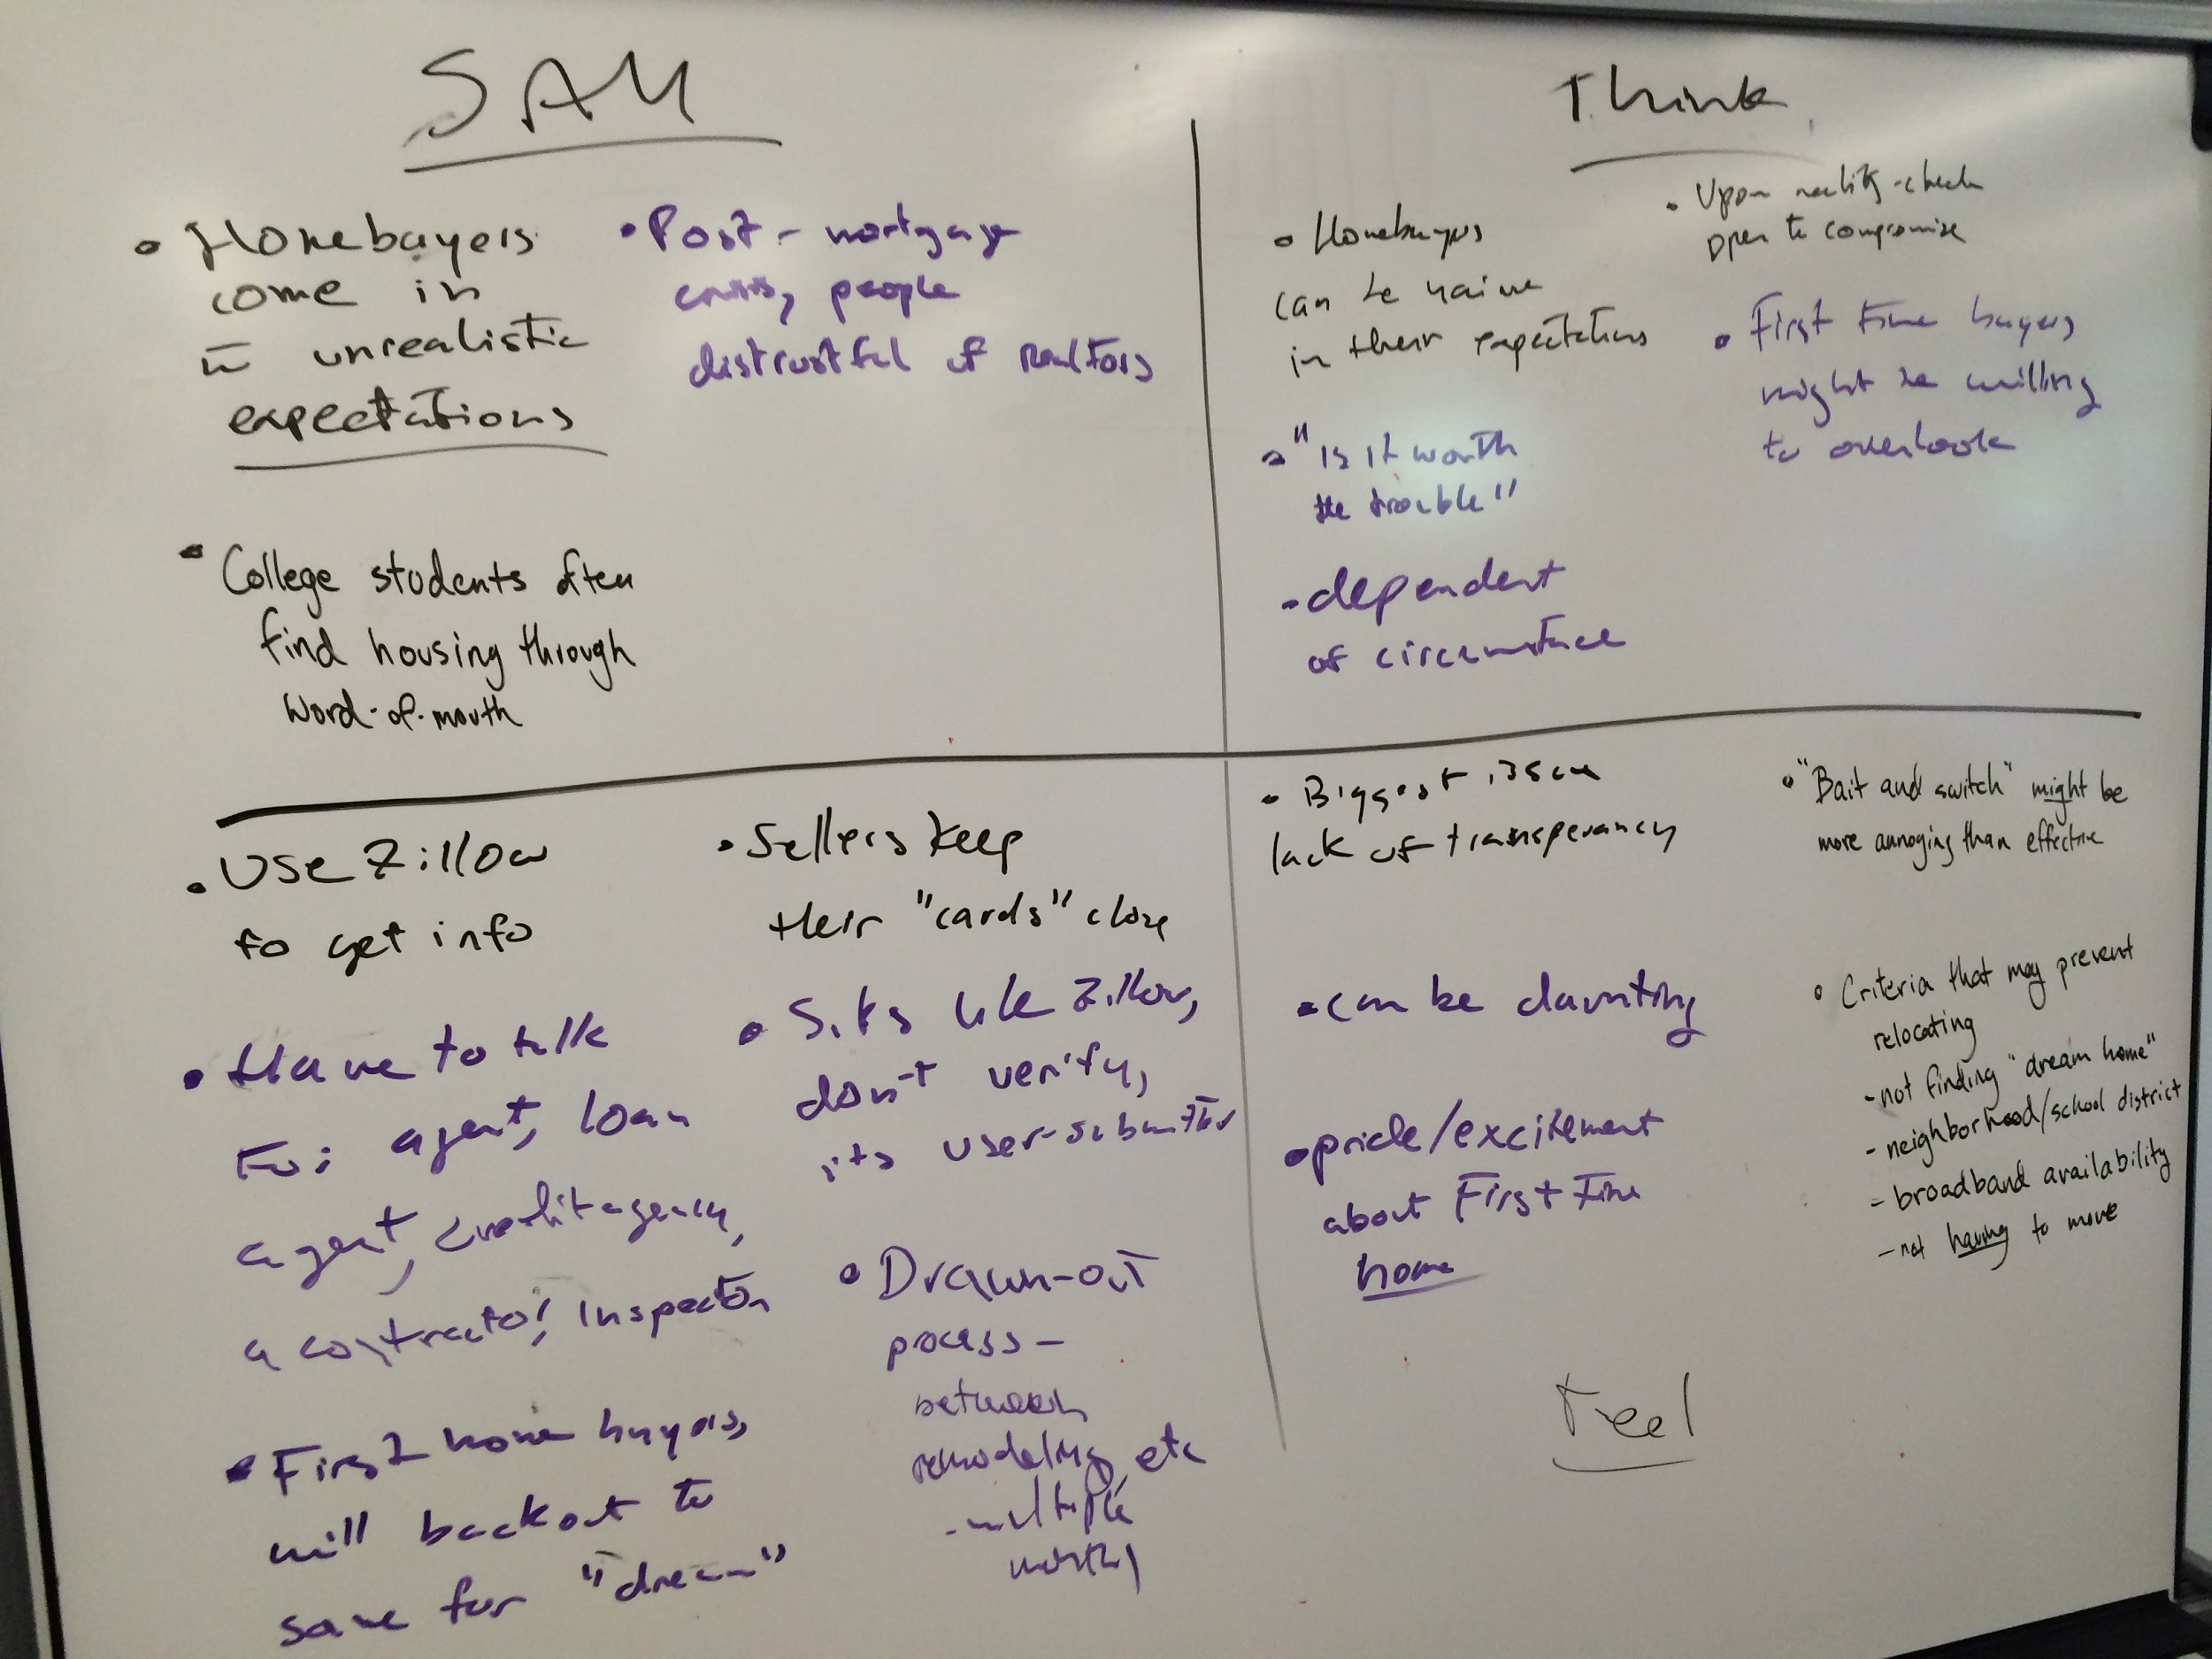 SAY
• Homebuyers
come in
w unrealistic
expectations
• Post-mortgage
crisis, people
distrustful of realtors
• College students often
find housing through
word-of-mouth
Think
• Homebuyers
can be naive
in their expectations
• Upon reality-check
open to compromise
• First time buyers
might be willing
to overlook
• "Is it worth
the trouble"
- dependent
of circumstance
• Use Zillow
to get info
• Have to talk
to: agent, loan
agent, credit agency,
a contractor, inspector
• First home buyers,
will back out to
save for "dream"
• Sellers keep
their "cards" close
• Sites like Zillow,
don't verify,
its user-submitted
• Drawn-out
process -
between
remodeling, etc
- multiple
months
• Biggest issue
lack of transperancy
• can be daunting
• pride/excitement
about First time
home
• "Bait and switch" might be
more annoying than effective
• Criteria that may prevent
relocating
- not finding "dream home"
- neighborhood/school district
- broadband availability
- not having to move
Feel